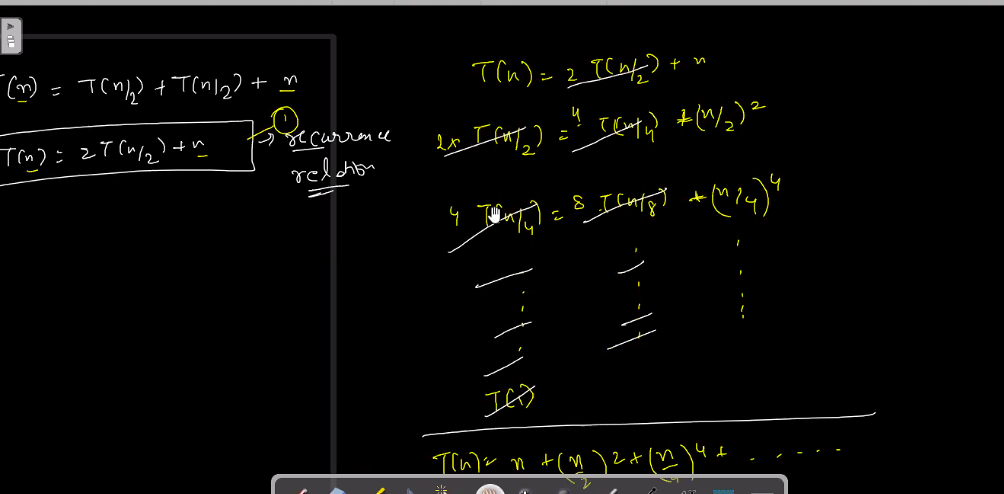 T(n) = T(n/2) + T(n/2) + n
T(n) = 2T(n/2) + n
1
→ recurrence
relation
T(n) = 2 T(n/2) + n
2x T(n/2) = 4 T(n/4) + (n/2) 2
4 T(n/4) = 8 T(n/8) + (n/4) 4
T(1)
T(n) = n + (n/2) 2 + (n/4) 4 + . . . . . .